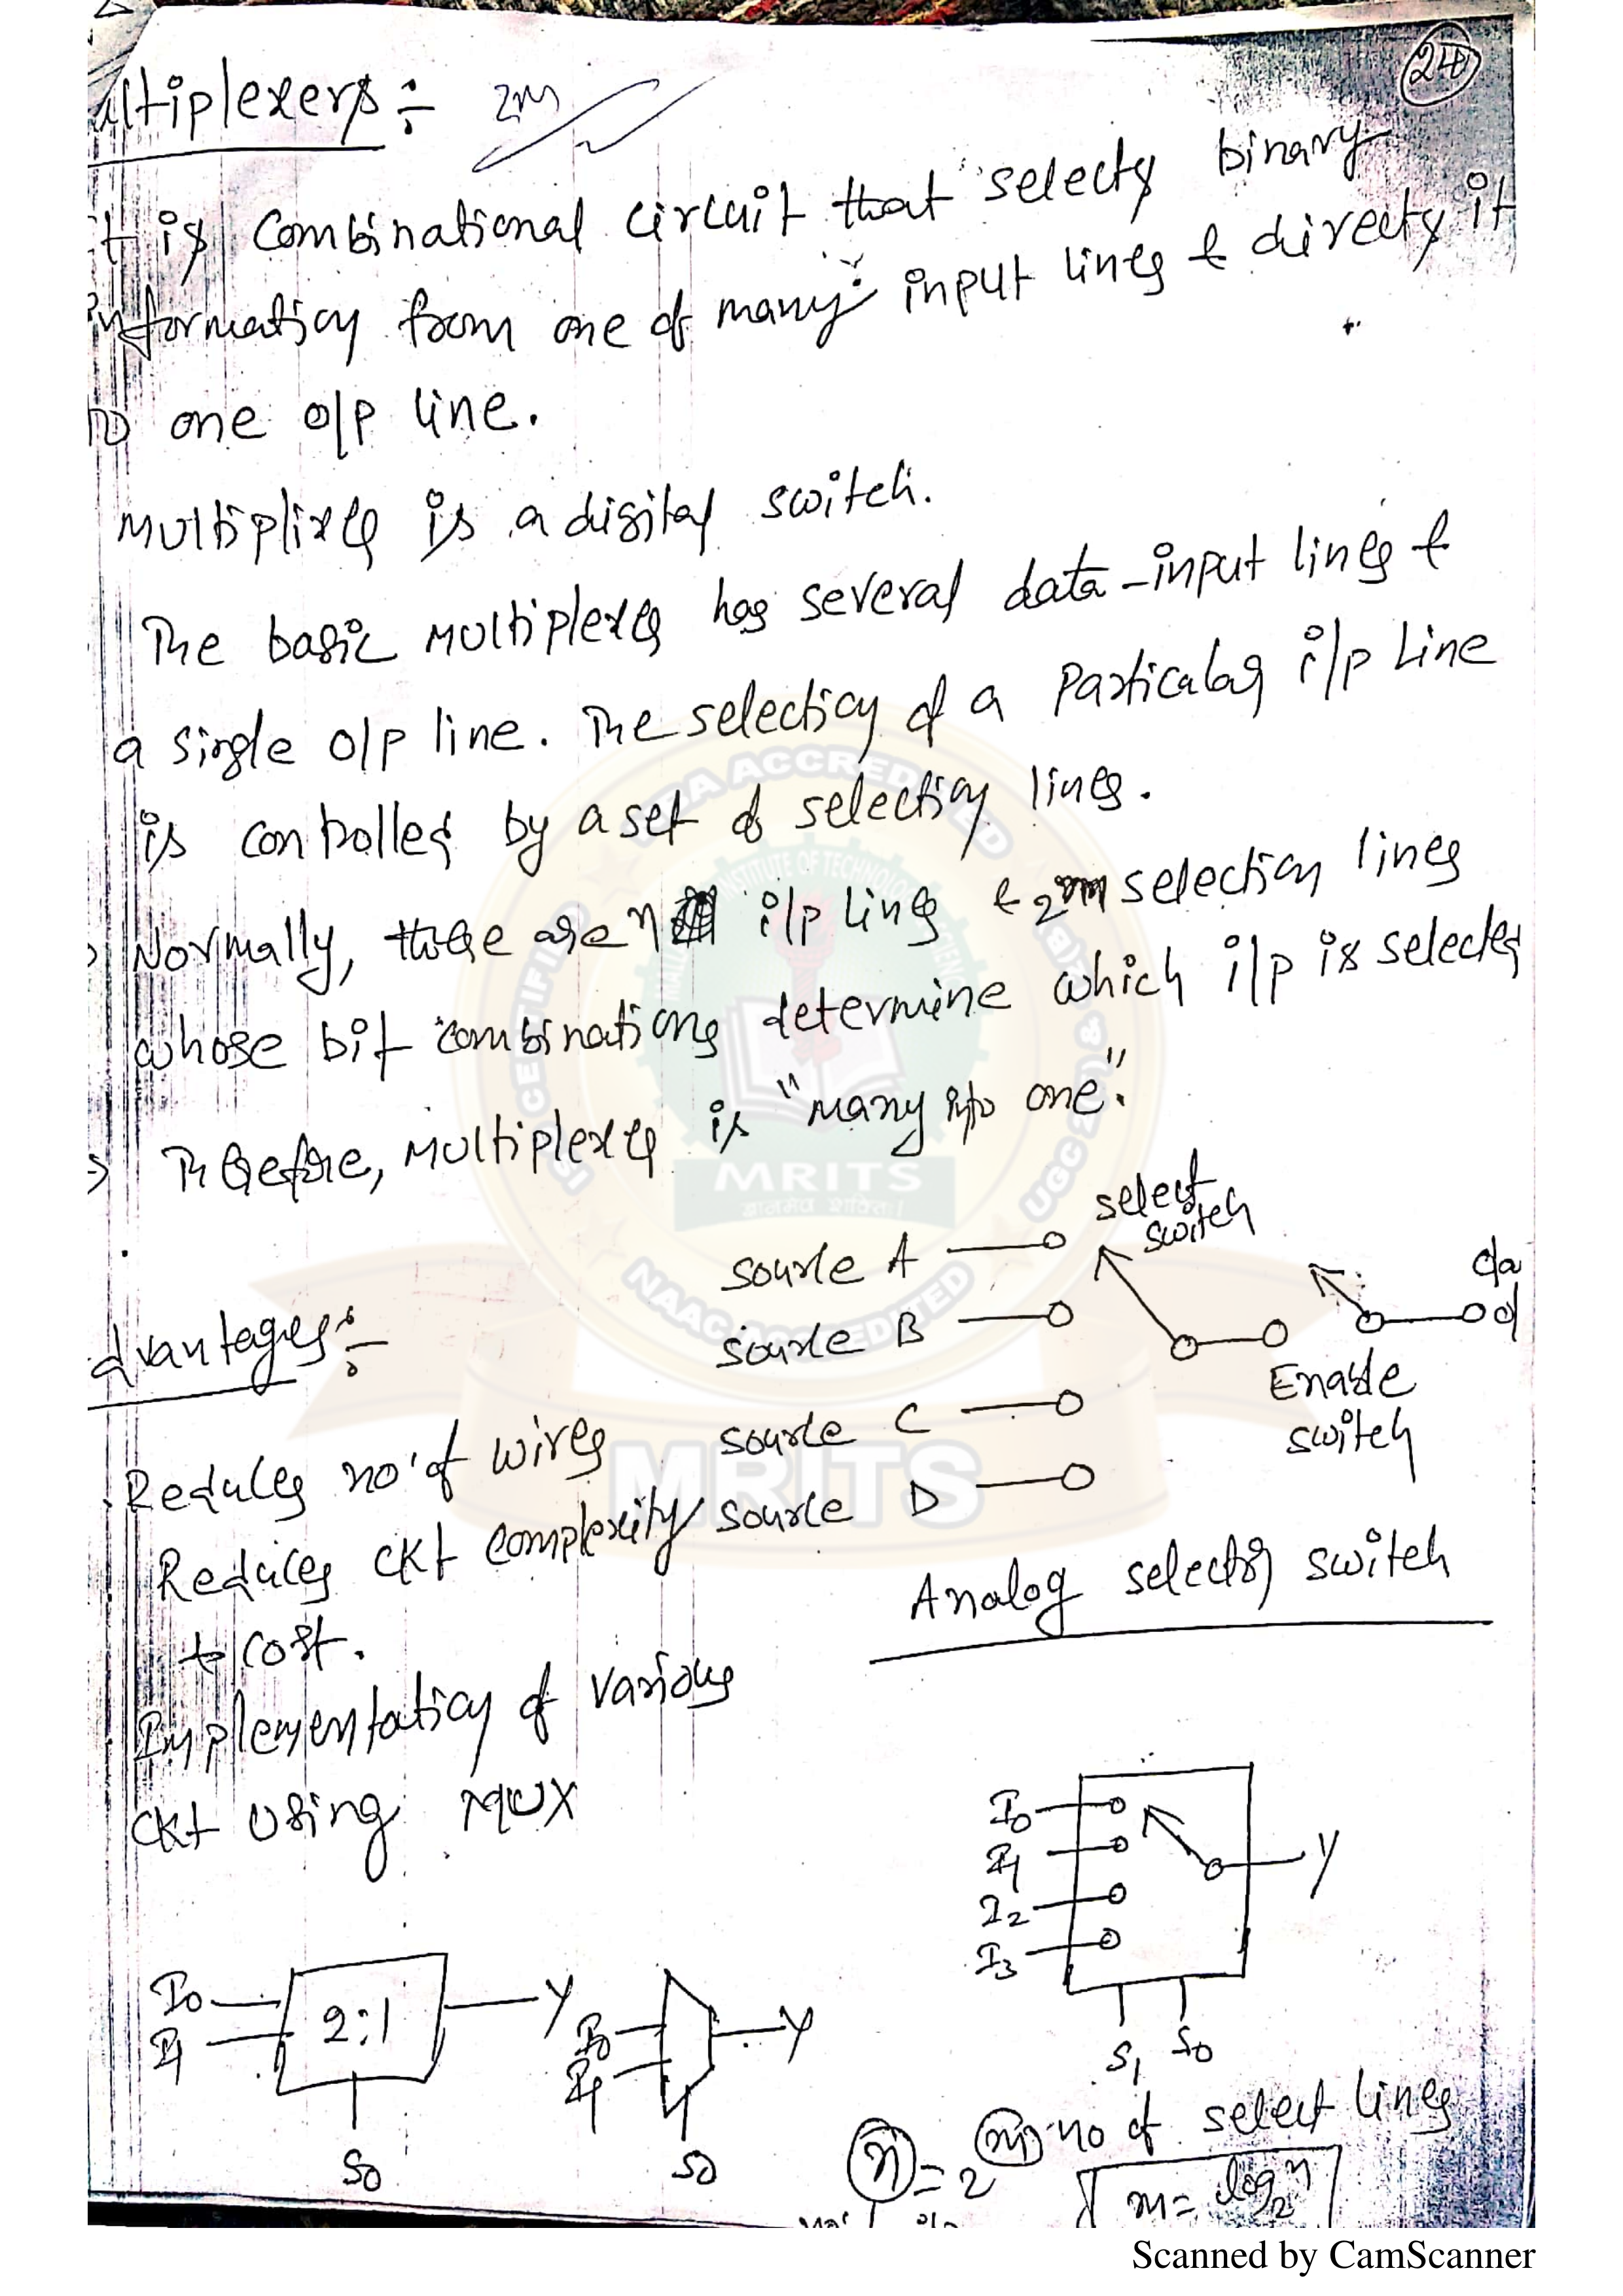 24
ultiplexers :-
2M
t is combinational circuit that selects binary
information from one of many input lines & directs it
to one o/p line.
Multiplixer is a digital switch.
The basic multiplexer has several data-input lines &
a single o/p line. The selection of a Particular i/p Line
is controlled by a set of selection lines.
Normally, there are n i/p lines & m selection lines
whose bit combinations determine which i/p is selected
Therefore, Multiplexer is "Many into one".
select
switch
source A
source B
source C
source D
da
d
Enable
switch
Analog selector switch
dvantages :-
Reduces no. of wires
Reduces ckt complexity
& cost.
Implementation of various
ckt using MUX
I0
I1
I2
I3
Y
S1 S0
I0
I1
2:1
Y
S0
I0
I1
Y
S0
n = 2^m no of select lines
m = log2 n
CERTIFIED
NBA ACCREDITED
INSTITUTE OF TECHNOLOGY
MRITS
NAAC ACCREDITED
MRITS
Scanned by CamScanner